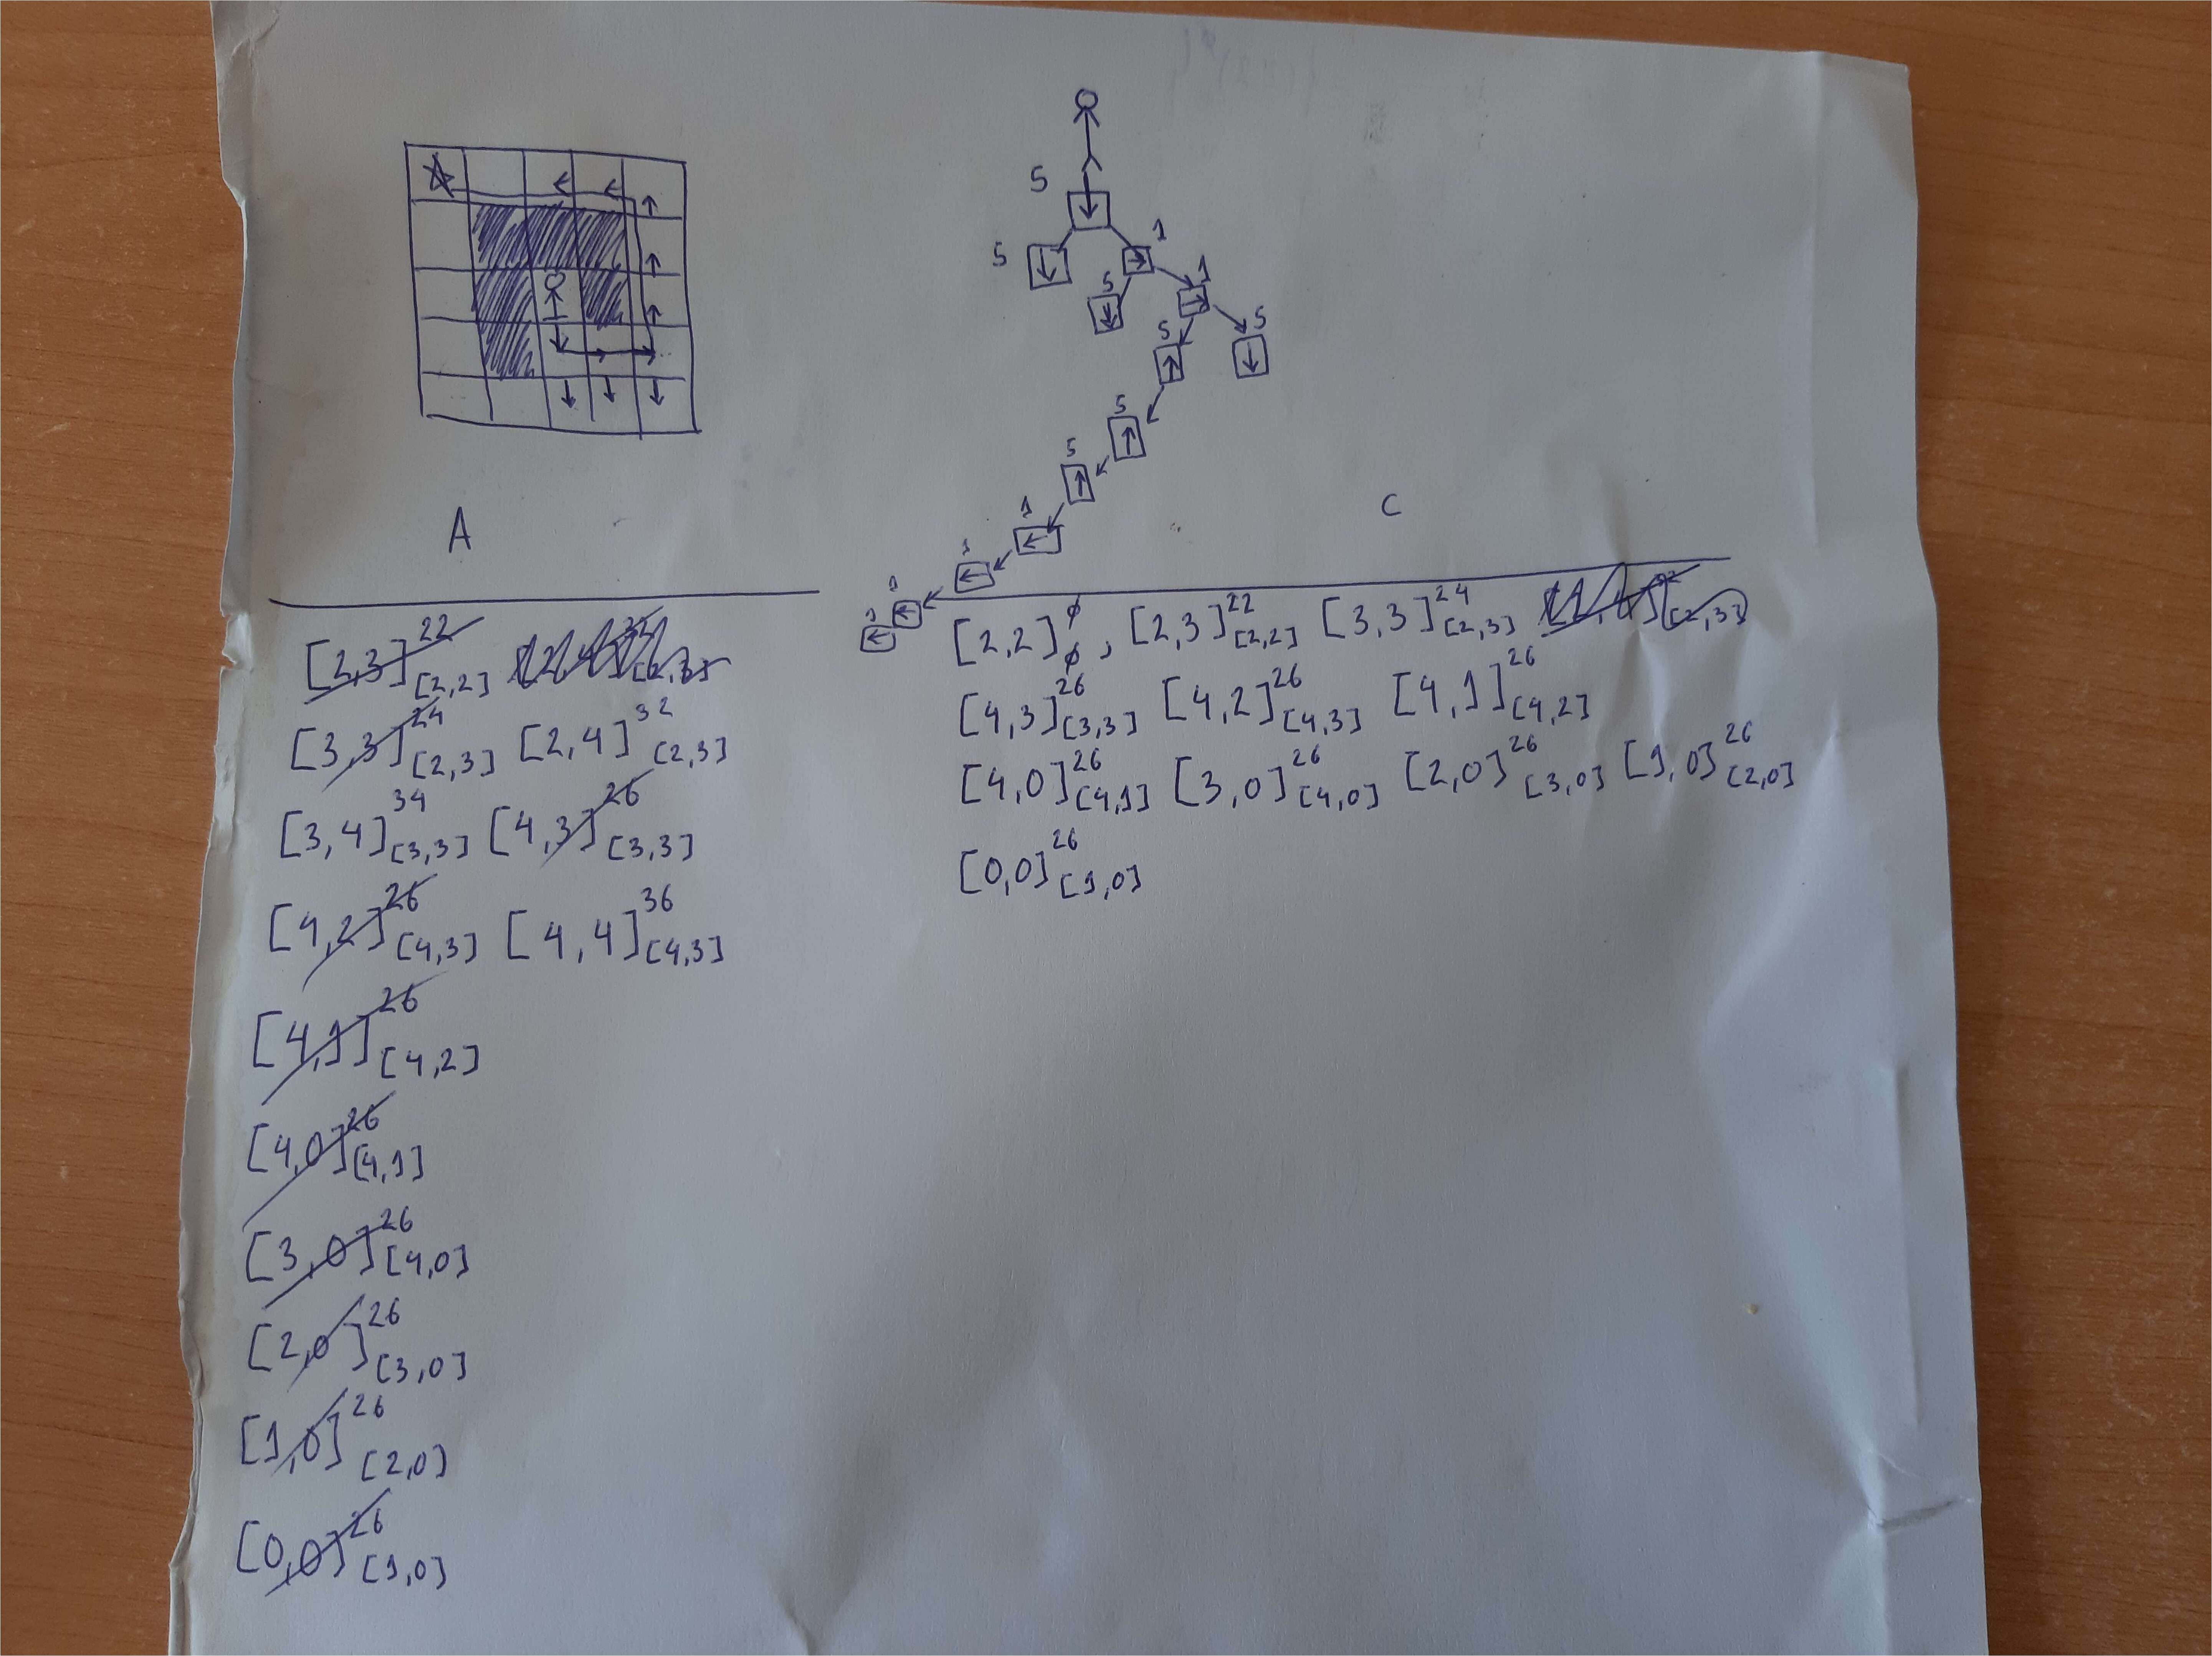 5
5 1
5 1
5 5
5
5
1
1
1
1
A
[2,3]²²[2,2]
[3,3]²⁴[2,3] [2,4]³²[2,3]
[3,4]³⁴[3,3] [4,3]²⁶[3,3]
[4,2]²⁶[4,3] [4,4]³⁶[4,3]
[4,1]²⁶[4,2]
[4,0]²⁶[4,1]
[3,0]²⁶[4,0]
[2,0]²⁶[3,0]
[1,0]²⁶[2,0]
[0,0]²⁶[1,0]
C
[2,2]∅∅, [2,3]²²[2,2] [3,3]²⁴[2,3]
[4,3]²⁶[3,3] [4,2]²⁶[4,3] [4,1]²⁶[4,2]
[4,0]²⁶[4,1] [3,0]²⁶[4,0] [2,0]²⁶[3,0] [1,0]²⁶[2,0]
[0,0]²⁶[1,0]